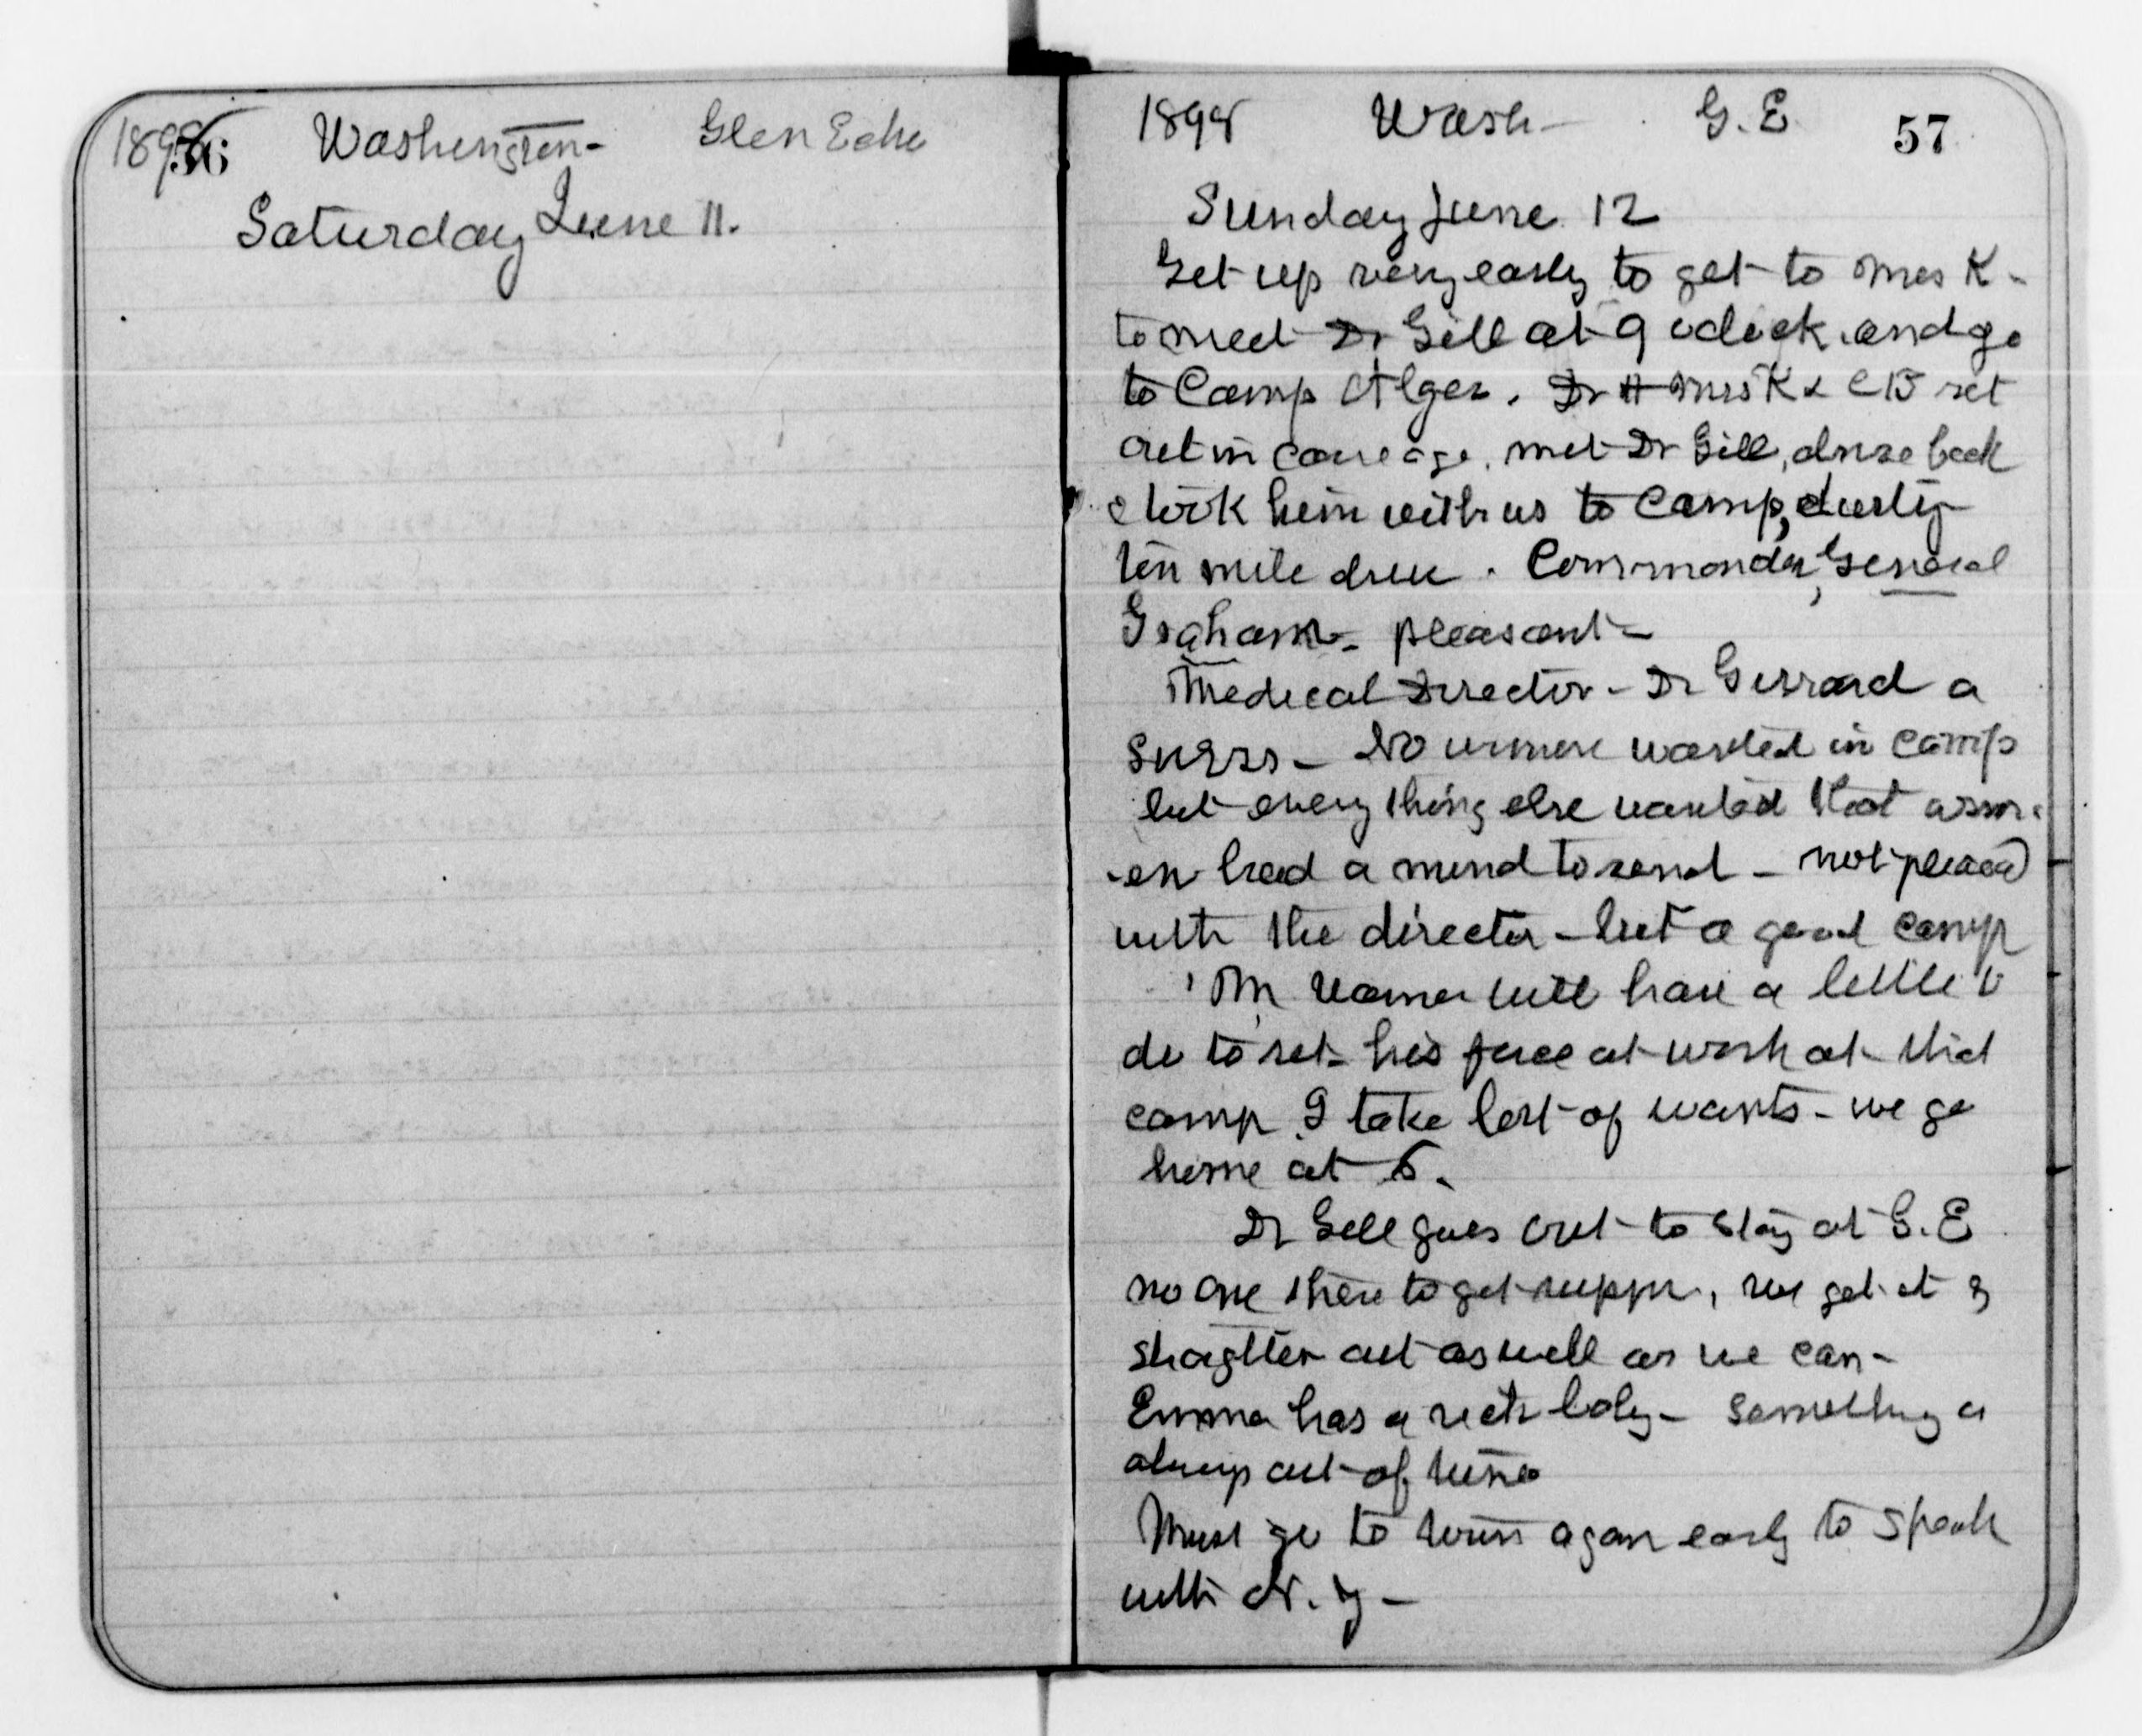 1898 56 Washington- Glen Echo
Saturday June 11.
1898 Wash- G.E 57
Sunday June 12
Get up very early to get to Mrs K-
to meet Dr Gill at 9 oclock and go
to Camp Alger. Dr H Mrs K & CB set
out in carriage, met Dr Gill, drove back
& took him with us to Camp, dusty
ten mile drive. Commander, General
Graham- pleasant-
Medical Director- Dr Girard a
Swiss- No women wanted in camp
but every thing else wanted that wom-
-en had a mind to send- not pleased
with the director- but a good camp
Mr will have a little to
do to set his force at work at this
camp I take list of wants- we go
home at 5.
Dr Gill goes out to stay at G.E
no one there to get supper, we get it &
straghten out as well as we can-
Emma has a sick baby- something is
always out of tune
Must go to town again early to speak
with N.Y-